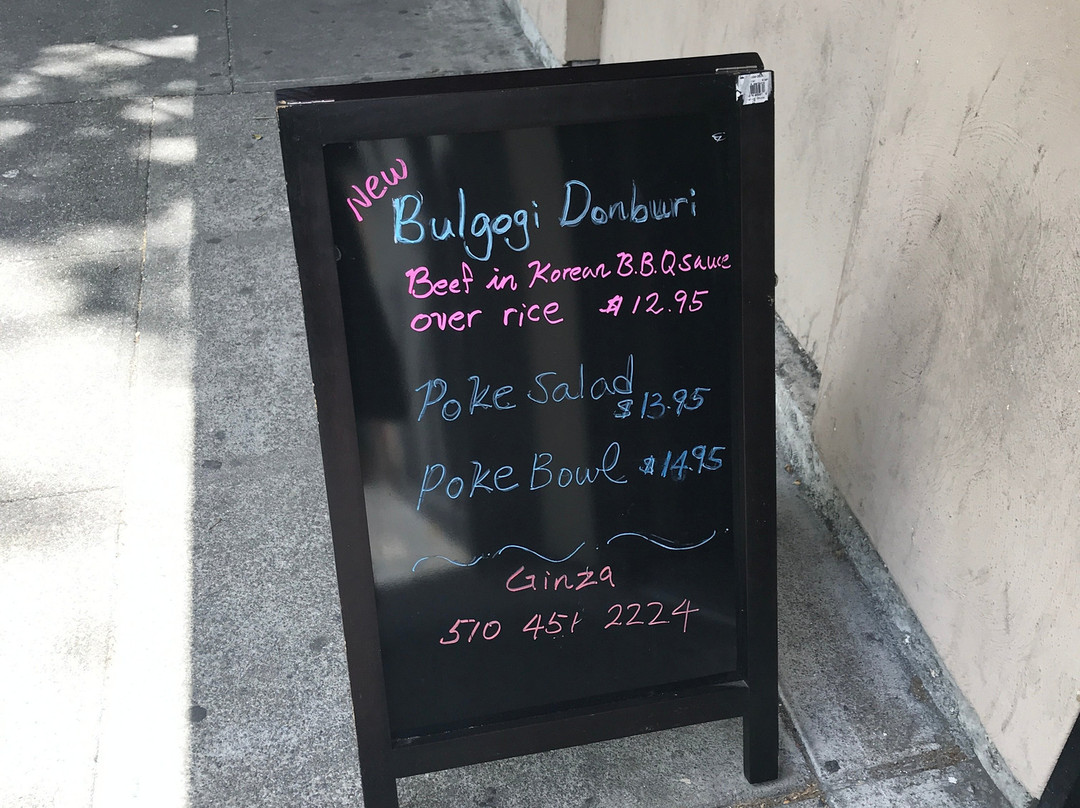 New
Bulgogi Donburi
Beef in Korean B.B.Q sauce
over rice $12.95
Poke Salad
$13.95
Poke Bowl $14.95
Ginza
510 451 2224